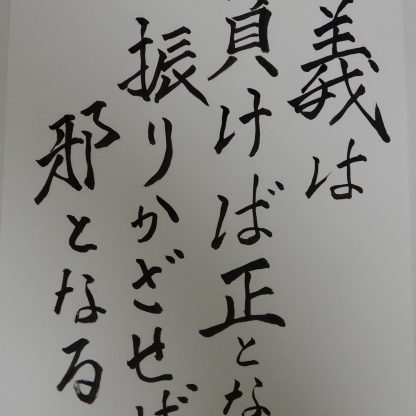 義は
負けば正とな
振りかざせば
邪となる